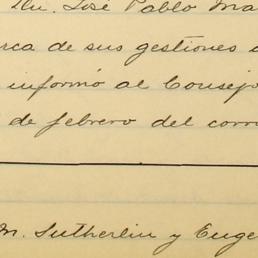 Dr. José Pablo Ma
rca de sus gestiones
informó al Consejo
de febrero del corri
M. Sutherlin y Euge